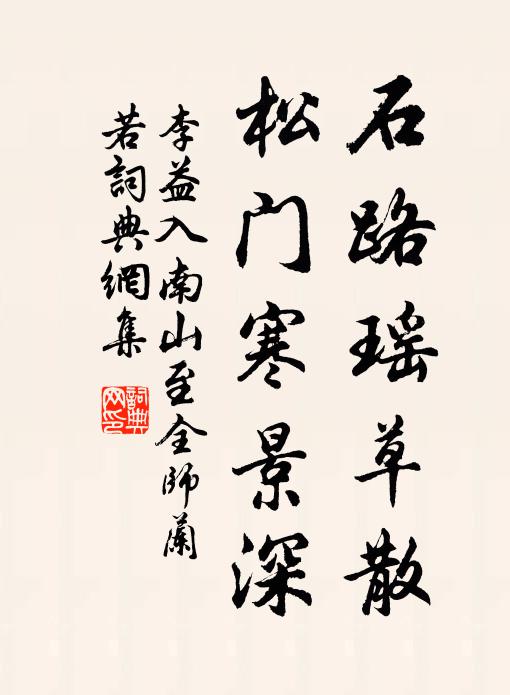 石路瑶草散
松门寒景深
李益入南山至全師蘭
若詞典網集
詞典
网印